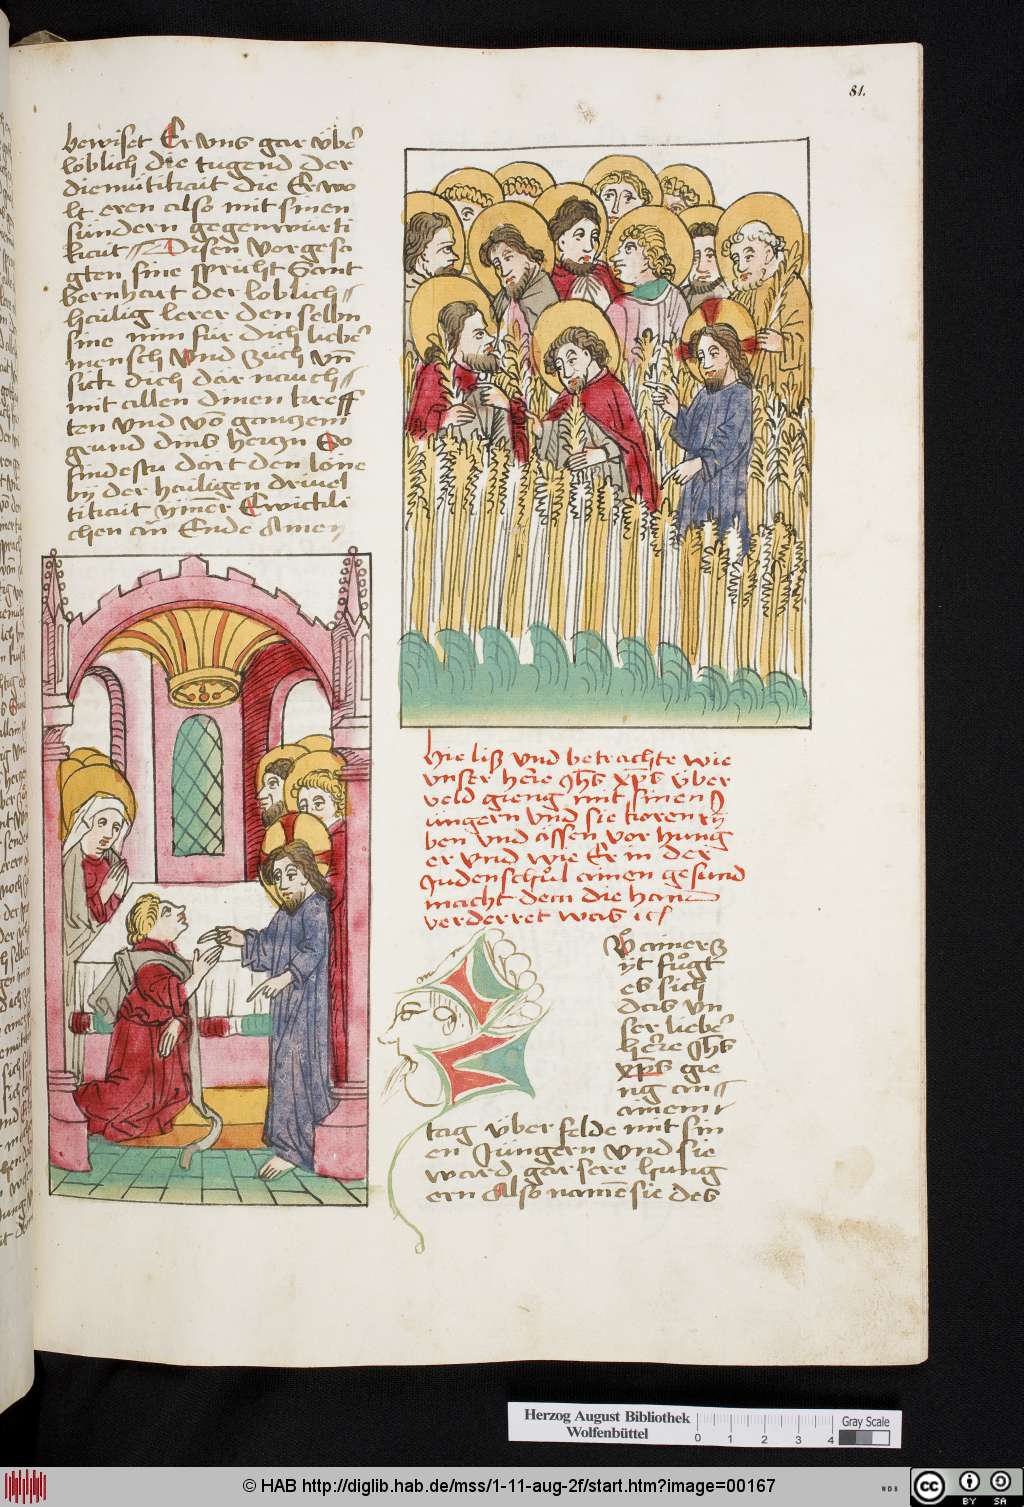 81.
bewiset Er vns gar v̈be᷑
loblich die tugend der
diemütikait die Er wo
lt eren also mit sinen
sündern gegenwürti
kait Disen vorgesa
gten sine spricht Sant
bernhart der loblich
hailig lerer den selbn
sine nim für dich liebe᷑
mensch vnd züch vn̄
sick dich dar nauch
mit allen dinen kreff
ten vnd vō ganczem
grund dins herczn So
findestu dort den lone
bÿ der hailigen drivel
tikait ÿmer Ewickli
chen on Ende Amen
hie liß vnd betrachte wie
vnser here Jhs xp̄s v̈ber
veld gieng mit sinen J
üngern vnd sie koren rÿ
ben vnd assen vor hung
er vnd wie Er in der
Judenschůl ainen gesund
macht dem die hand
verderret was ꝛc
Zů ainer z
ÿt fůgt
es sich
das vn
ser liebe᷑
here Jhs
xp̄s gie
ng an
ainem
tag v̈ber felde mit sin
en Jüngern vnd sie
ward gar sere hung
ern Also namē sie des
Herzog August Bibliothek
Wolfenbüttel
Gray Scale
0 1 2 3 4
© HAB http://diglib.hab.de/mss/1-11-aug-2f/start.htm?image=00167
cc BY SA